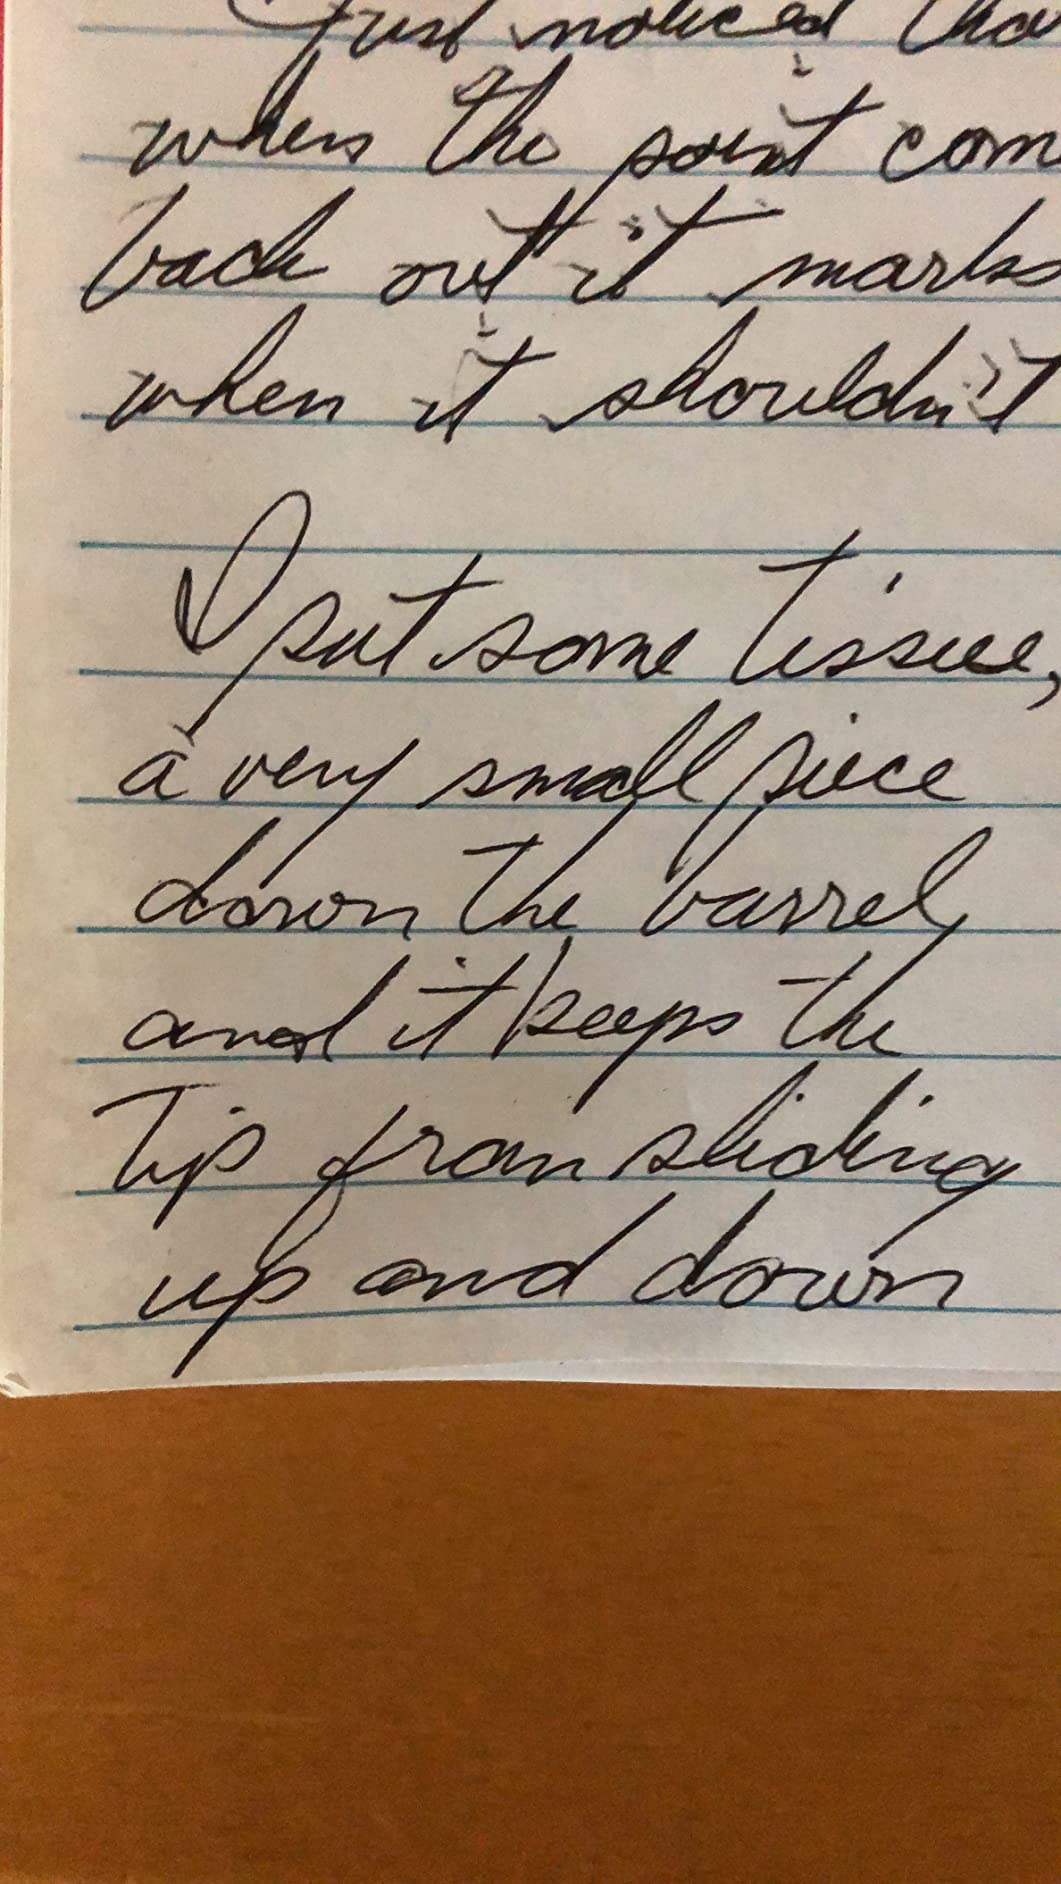 Just noticed tha
when the point com
back out it marks
when it shouldn't
I put some tissue,
a very small piece
down the barrel
and it keeps the
tip from sliding
up and down